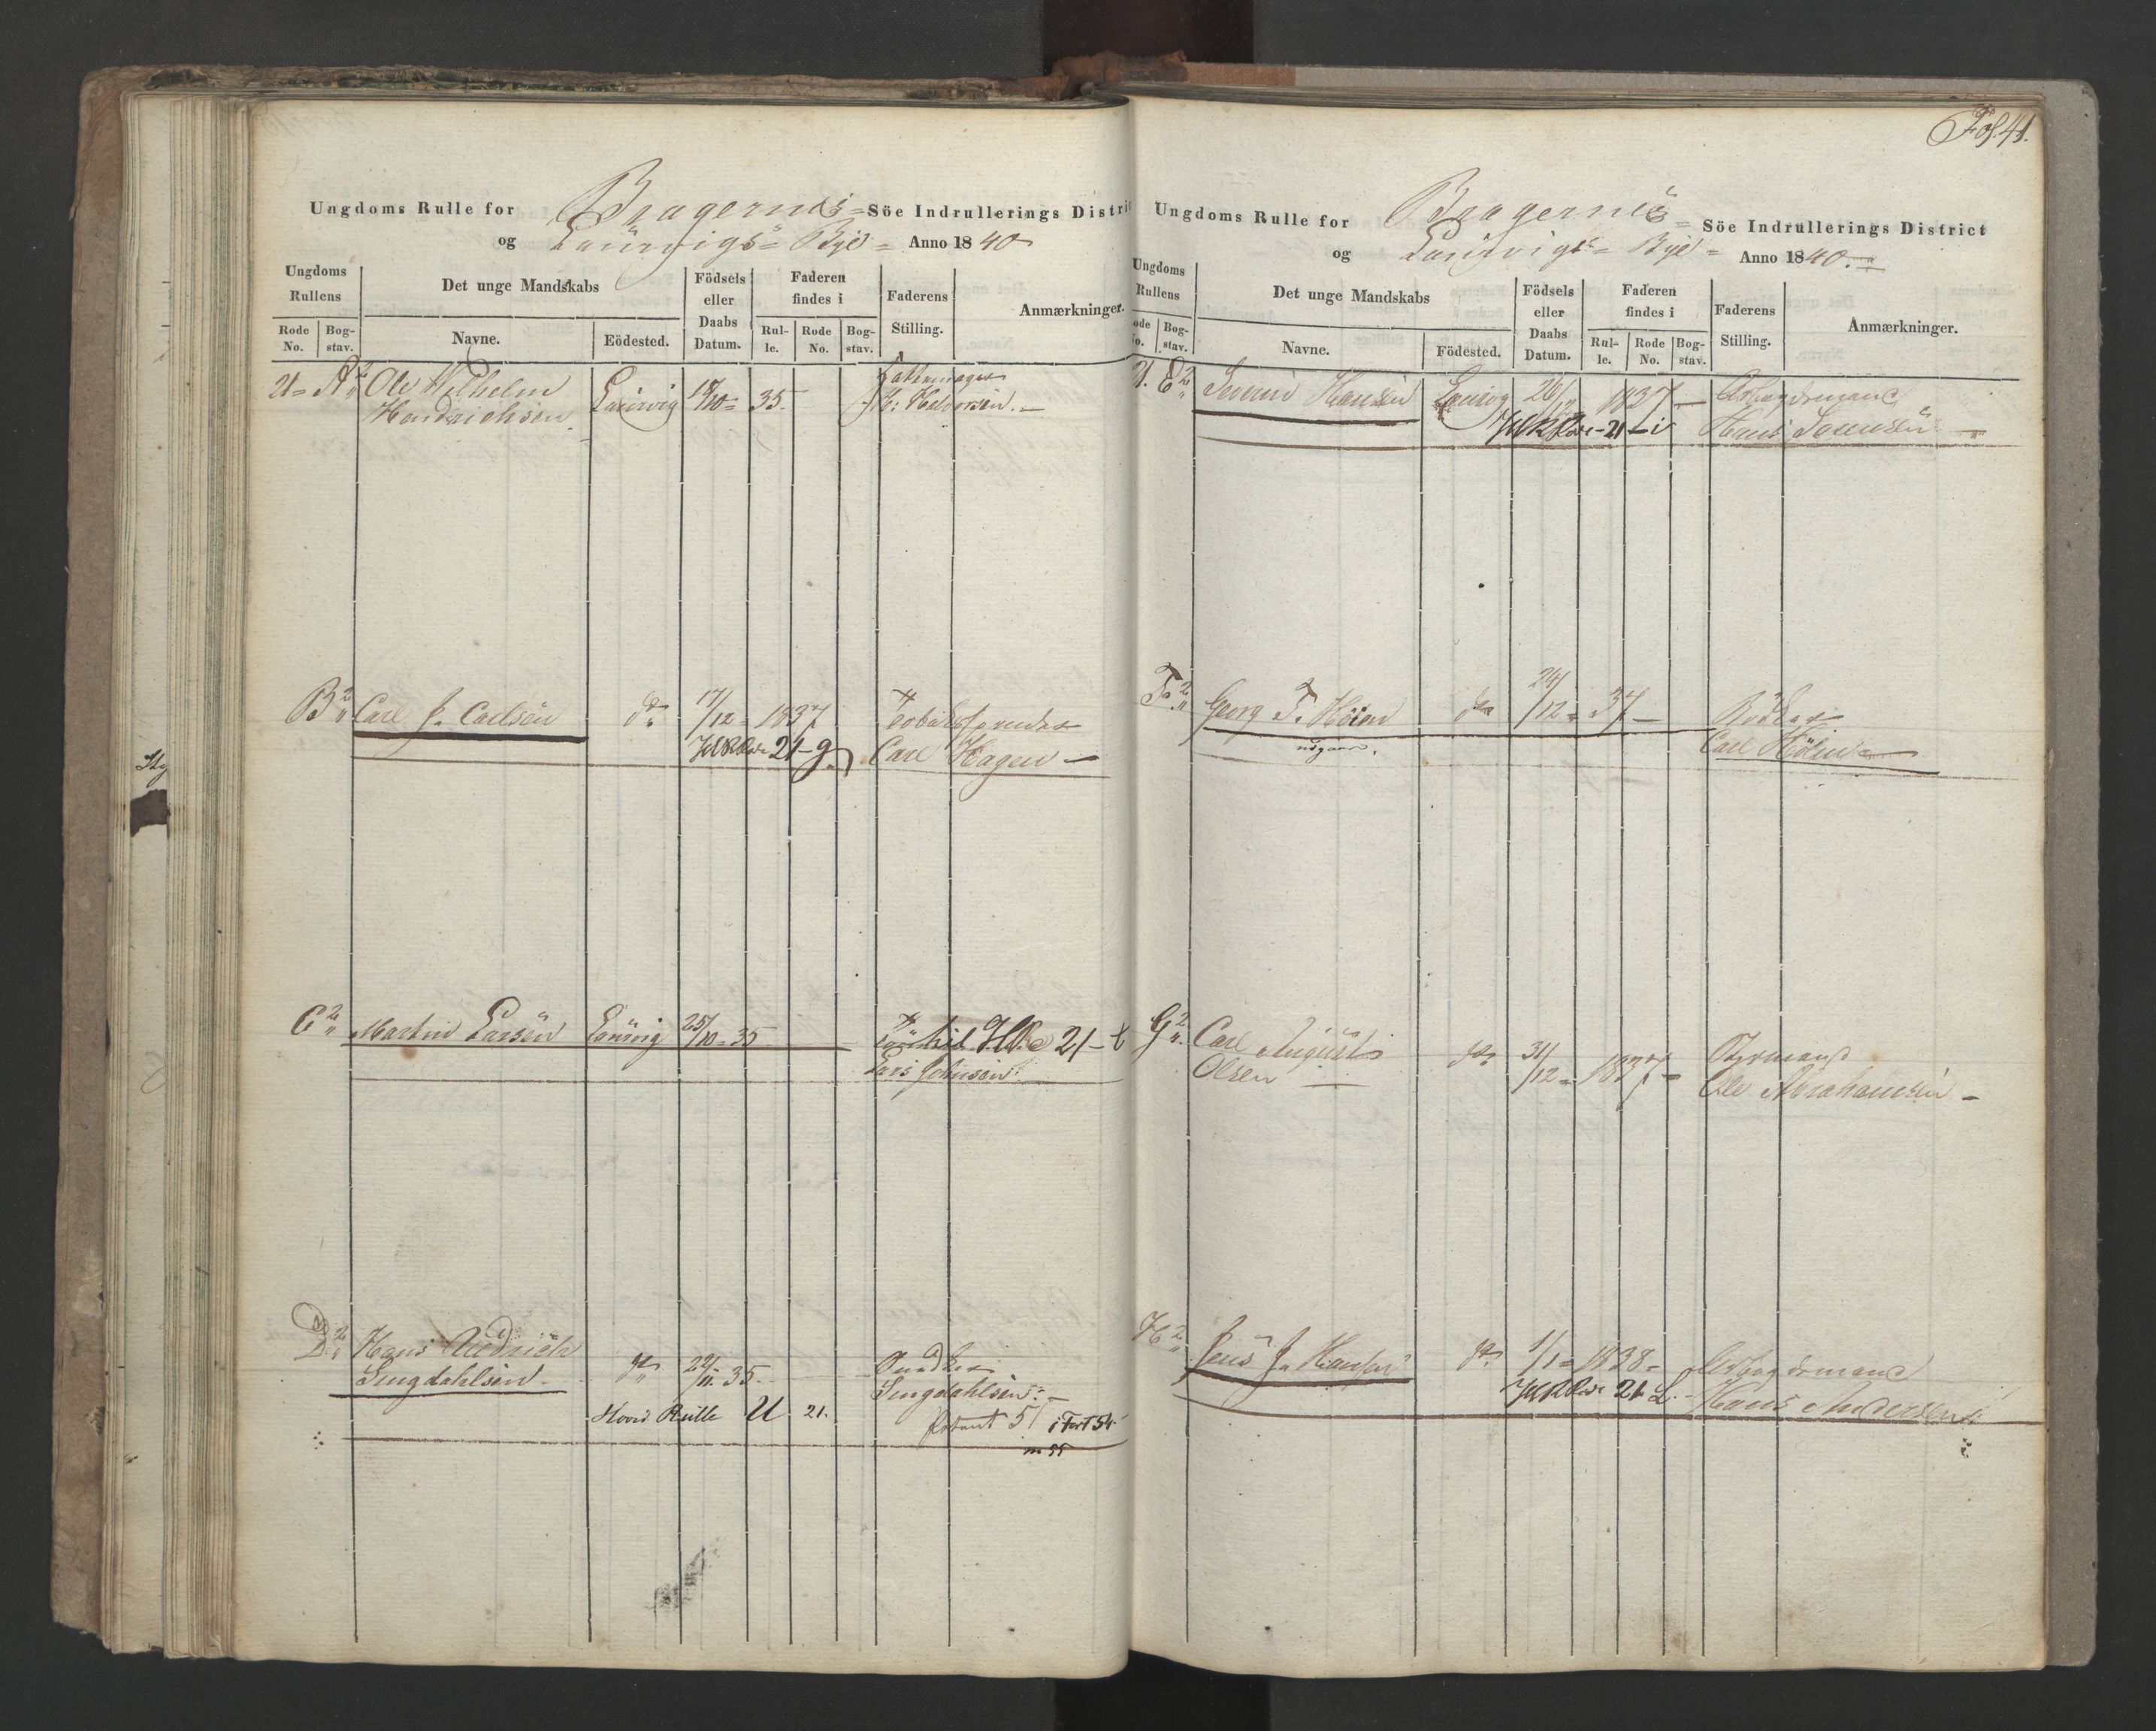 Ungdoms Rulle for Bragernes Söe Indrullerings District
og Laurvigs Bye Anno 1840
Ungdoms Rullens
Rode No.
Bog-stav.
Det unge Mandskabs
Navne.
Födested.
Födsels eller Daabs Datum.
Faderen findes i
Rul-le.
Rode No.
Bog-stav.
Faderens Stilling.
Anmærkninger.
21 A 2 Ole Wilhelm Laurvig 35
Hendrichsen Halvorsen
B 2 Carl J. Carlsen do 17/12 1837
21-g Carl Hagen
C 2 Martin Larsen Laurvig 25/10 35 til 21-t
Lars Johnsen
D 2 Hans
Lingdahlsen do 35 Snedker
Lingdahlsen
Hoved Rulle U 21.
51 54
55
Fol. 41.
Ungdoms Rulle for Bragernes Söe Indrullerings District
og Laurvigs Bye Anno 1840
Ungdoms Rullens
ode No.
Bog-stav.
Det unge Mandskabs
Navne.
Födested.
Födsels eller Daabs Datum.
Faderen findes i
Rul-le.
Rode No.
Bog-stav.
Faderens Stilling.
Anmærkninger.
21. E 2 Severin Hansen Laurvig 26/12 1837 Arbejdsmand
21-i Hans Sorensen
F 2 Georg T. Höien do 24/12 37 Bödker
udgaar. Carl Höien
G 2 Carl August do 31/12 1837 Styrmand
Olsen Ole Abrahamsen
H 2 Jens J. Hansen do 1/1 1838 Arbejdsmand
21 L. Hans Andersen